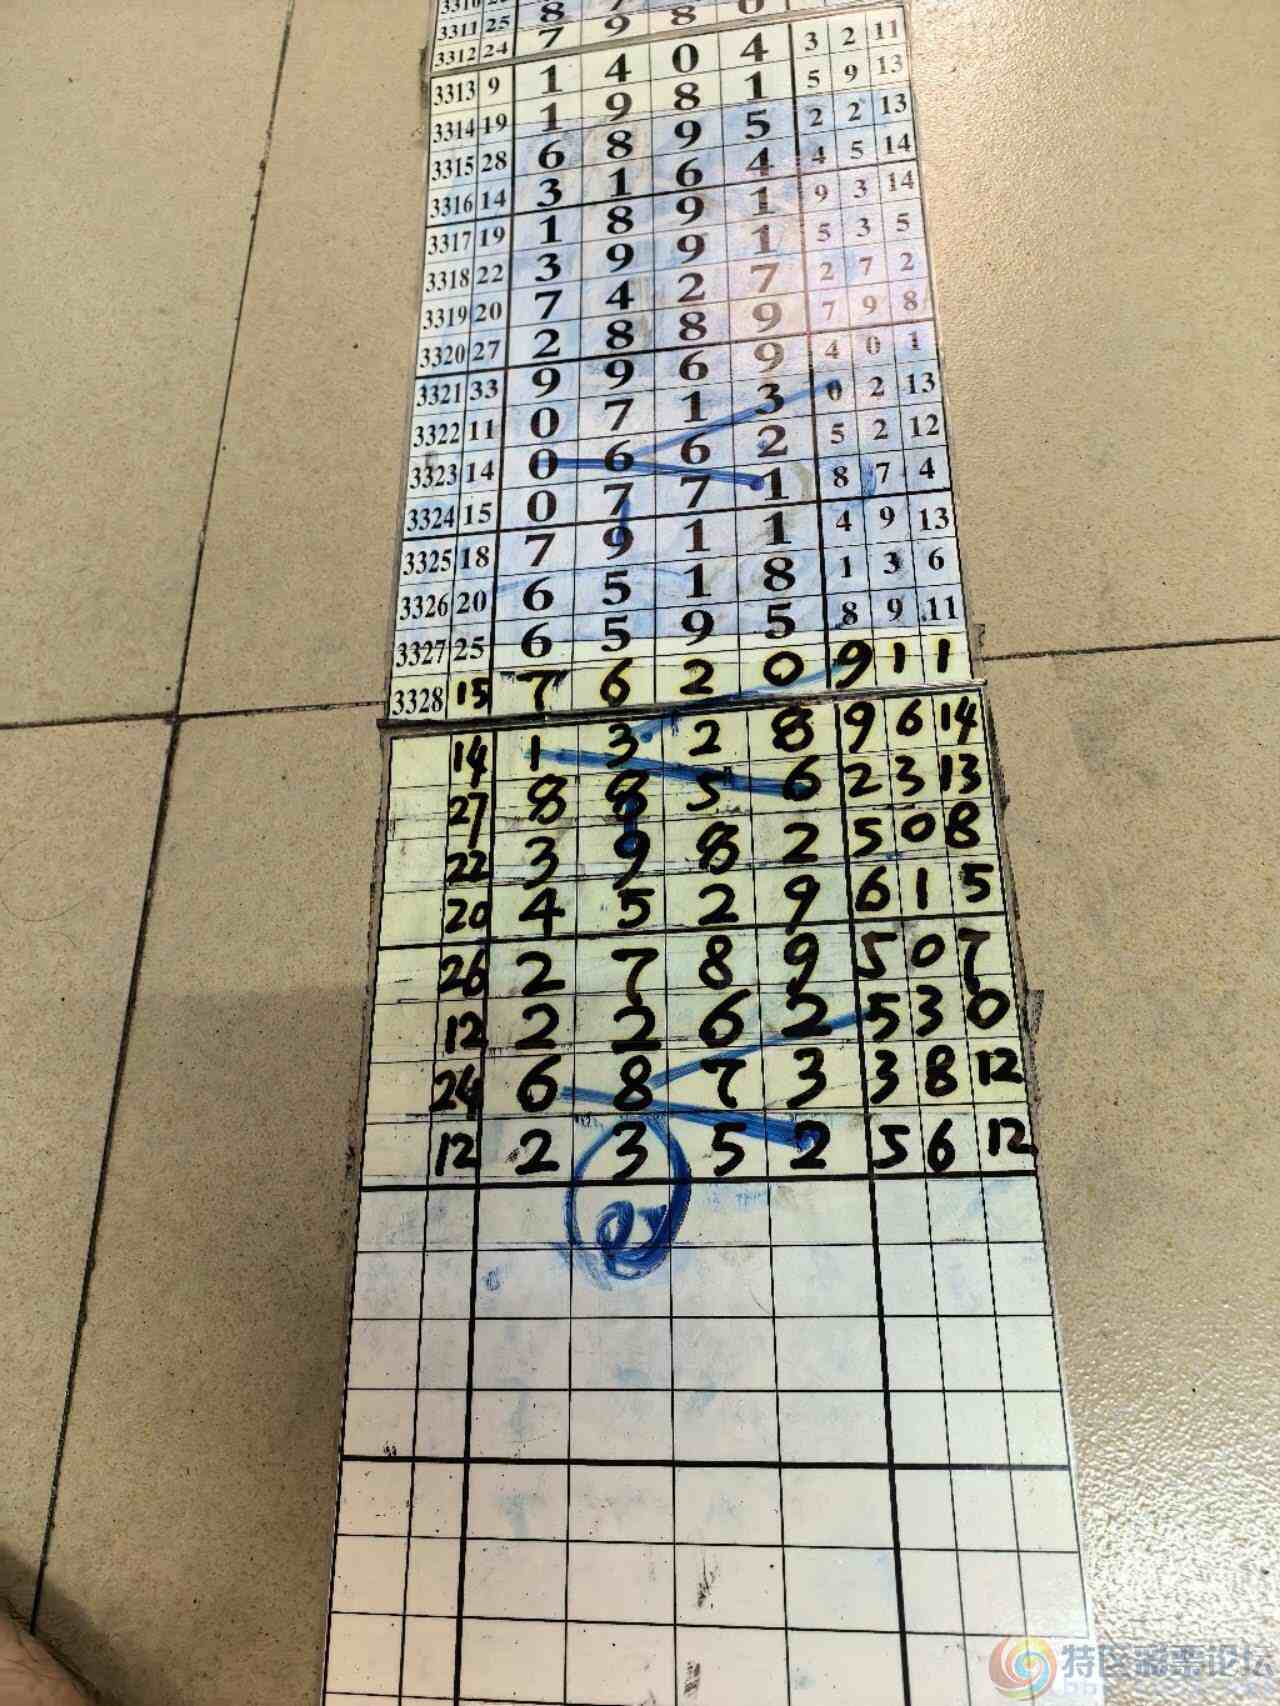 3311 25 8
3312 24 7 9 8 0
3313 9 1 4 0 4 3 2 11
3314 19 1 9 8 1 5 9 13
3315 28 6 8 9 5 2 2 13
3316 14 3 1 6 4 4 5 14
3317 19 1 8 9 1 9 3 14
3318 22 3 9 9 1 5 3 5
3319 20 7 4 2 7 2 7 2
3320 27 2 8 8 9 7 9 8
3321 33 9 9 6 9 4 0 1
3322 11 0 7 1 3 0 2 13
3323 14 0 6 6 2 5 2 12
3324 15 0 7 7 1 8 7 4
3325 18 7 9 1 1 4 9 13
3326 20 6 5 1 8 1 3 6
3327 25 6 5 9 5 8 9 11
3328 15 7 6 2 0 9 1 1
14 1 3 2 8 9 6 14
27 8 8 5 6 2 3 13
22 3 9 8 2 5 0 8
20 4 5 2 9 6 1 5
26 2 7 8 9 5 0 7
12 2 2 6 2 5 3 0
24 6 8 7 3 3 8 12
12 2 3 5 2 5 6 12
特区彩票论坛